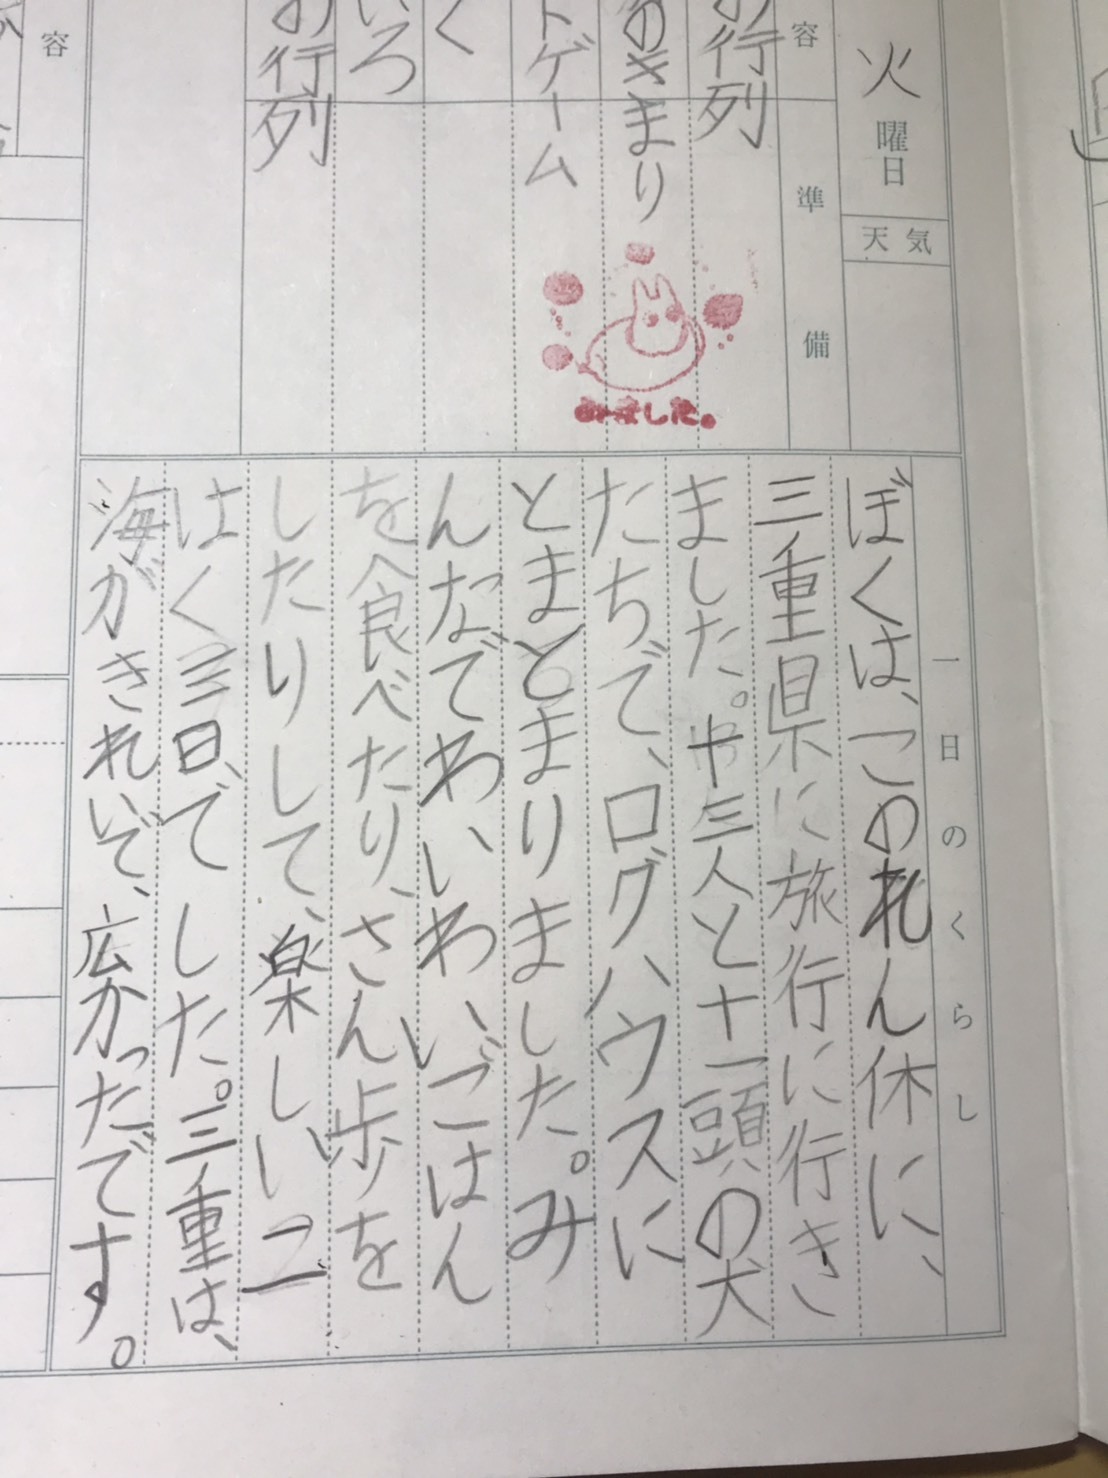 火曜日
天気
容
準備
お行列
のきまり
トゲーム
く
いろ
お行列
容
みました。
一日のくらし
ぼくは、このれん休に、
三重県に旅行に行き
ました。十三人と十一頭の犬
たちで、ログハウスに
とまとまりました。み
んなでわいわいごはん
を食べたり、さん歩を
したりして、楽しい二
はく三日、でした。三重は、
海がきれいで、広かったです。